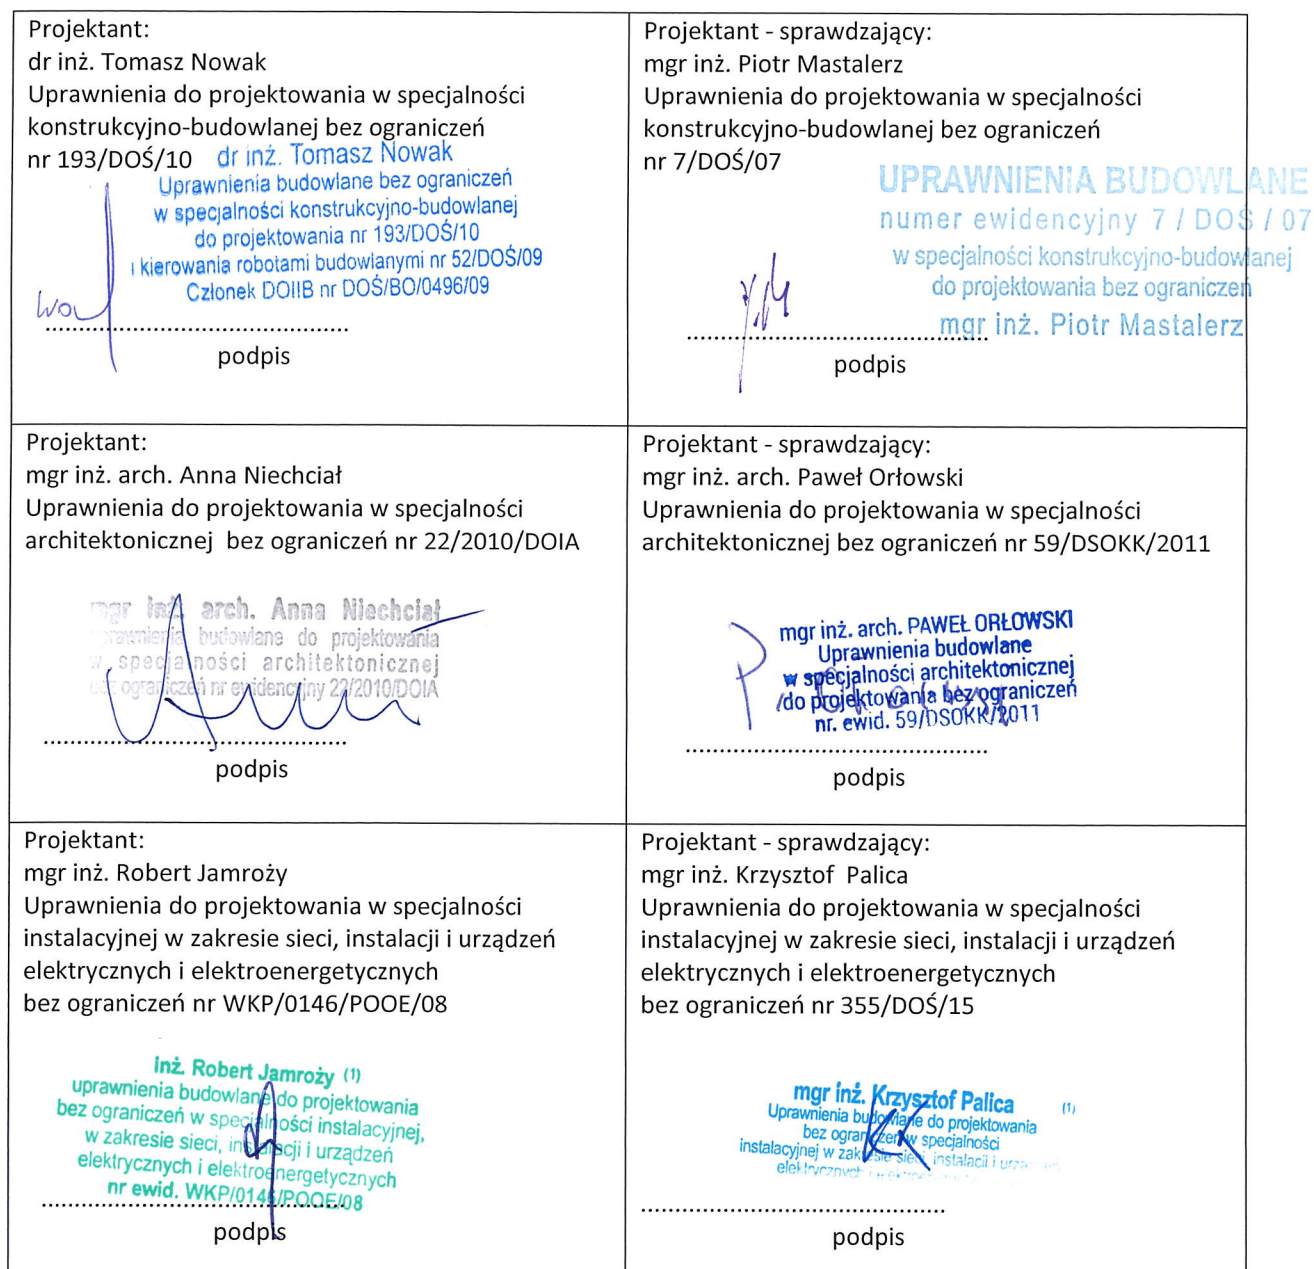 Projektant:
dr inż. Tomasz Nowak
Uprawnienia do projektowania w specjalności
konstrukcyjno-budowlanej bez ograniczeń
nr 193/DOŚ/10
dr inż. Tomasz Nowak
Uprawnienia budowlane bez ograniczeń
w specjalności konstrukcyjno-budowlanej
do projektowania nr 193/DOŚ/10
i kierowania robotami budowlanymi nr 52/DOŚ/09
Członek DOIIB nr DOŚ/BO/0496/09
podpis
Projektant - sprawdzający:
mgr inż. Piotr Mastalerz
Uprawnienia do projektowania w specjalności
konstrukcyjno-budowlanej bez ograniczeń
nr 7/DOŚ/07
UPRAWNIENIA BUDOWLANE
numer ewidencyjny 7 / DOŚ / 07
w specjalności konstrukcyjno-budowlanej
do projektowania bez ograniczeń
mgr inż. Piotr Mastalerz
podpis
Projektant:
mgr inż. arch. Anna Niechciał
Uprawnienia do projektowania w specjalności
architektonicznej bez ograniczeń nr 22/2010/DOIA
mgr inż. arch. Anna Niechciał
budowlane do projektowania
w specjalności architektonicznej
bez ograniczeń nr ewidencyjny 22/2010/DOIA
podpis
Projektant - sprawdzający:
mgr inż. arch. Paweł Orłowski
Uprawnienia do projektowania w specjalności
architektonicznej bez ograniczeń nr 59/DSOKK/2011
mgr inż. arch. PAWEŁ ORŁOWSKI
Uprawnienia budowlane
w specjalności architektonicznej
do projektowania bez ograniczeń
nr. ewid. 59/DSOKK/2011
podpis
Projektant:
mgr inż. Robert Jamroży
Uprawnienia do projektowania w specjalności
instalacyjnej w zakresie sieci, instalacji i urządzeń
elektrycznych i elektroenergetycznych
bez ograniczeń nr WKP/0146/POOE/08
inż. Robert Jamroży (1)
uprawnienia budowlane do projektowania
bez ograniczeń w specjalności instalacyjnej,
w zakresie sieci, instalacji i urządzeń
elektrycznych i elektroenergetycznych
nr ewid. WKP/0146/POOE/08
podpis
Projektant - sprawdzający:
mgr inż. Krzysztof Palica
Uprawnienia do projektowania w specjalności
instalacyjnej w zakresie sieci, instalacji i urządzeń
elektrycznych i elektroenergetycznych
bez ograniczeń nr 355/DOŚ/15
mgr inż. Krzysztof Palica (1)
Uprawnienia budowlane do projektowania
bez ograniczeń w specjalności
instalacyjnej w zakresie sieci, instalacji i
elektrycznych i
podpis